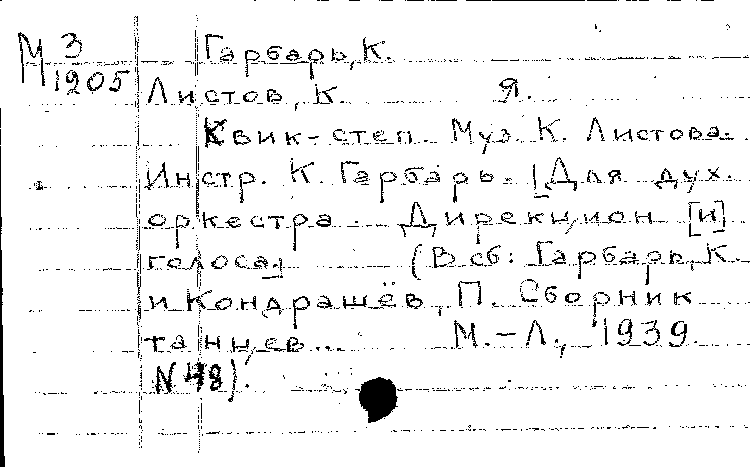 М 3 Гарбарь, К.
1905 Листов, К. Я.
Квик-степ. Муз. К. Листова.
Инстр. К. Гарбарь. [Для дух.
оркестра. Дирекцион [и]
голоса] (В сб: Гарбарь, К.
и Кондрашёв, П. Сборник
танцев... М.-Л., 1939.
N 48).